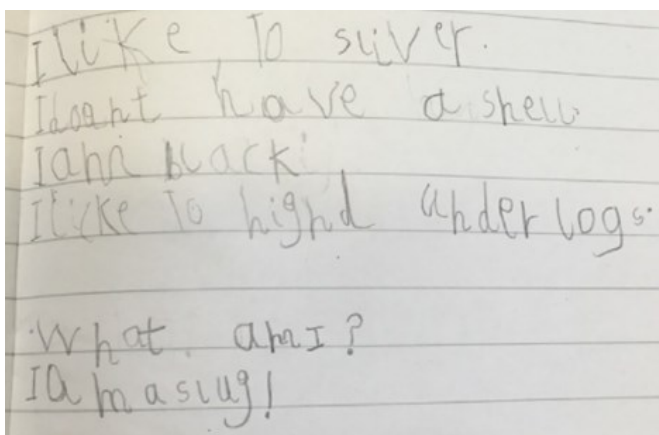 I like To sliver.
I doant have a shell.
I am black.
I licke To highd under logs.
What am I?
I am a slug!